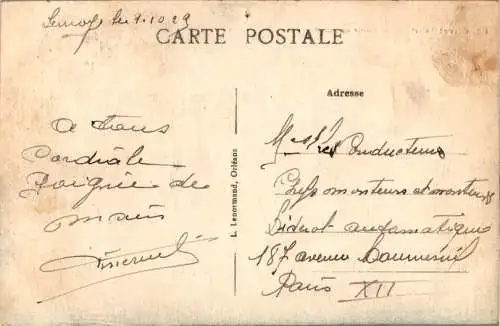 le 1.10.29
CARTE POSTALE
Adresse
a tous
Cordiale
Poignée de
main
L. Lenormand, Orléans
Mrs les Conducteurs
Chefs monteurs et monteurs
Diderot automatique
187 avenue Daumesnil
Paris XII